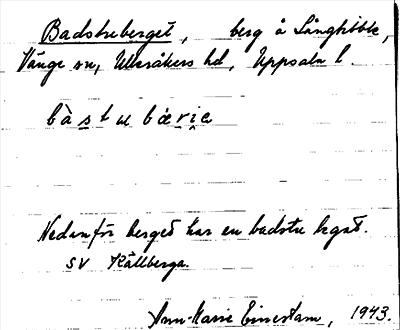 Badstuberget, berg å Långtibble,
Vänge sn, Ulleråkers hd, Uppsala l.
bàstubærịe
Nedanför berget har en badstu legat.
SV Källberga.
Ann-Marie Einerstam, 1943.